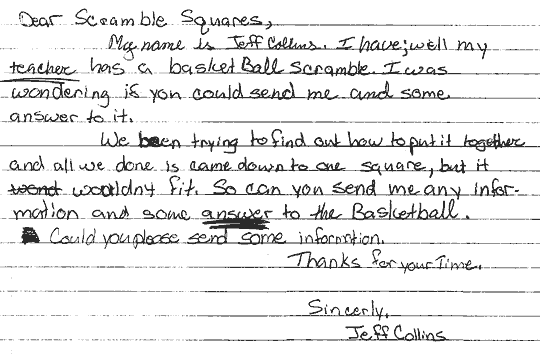 Dear Scramble Squares,
My name is Jeff Collins. I have; well my
teacher has a basketBall Scramble. I was
wondering if you could send me and some
answer to it.
We been trying to find out how to put it together
and all we done is came down to one square, but it
wont wouldny fit. So can you send me any infor-
mation and some answer to the Basketball.
Could you please send some information.
Thanks for your Time.
Sincerly,
Jeff Collins